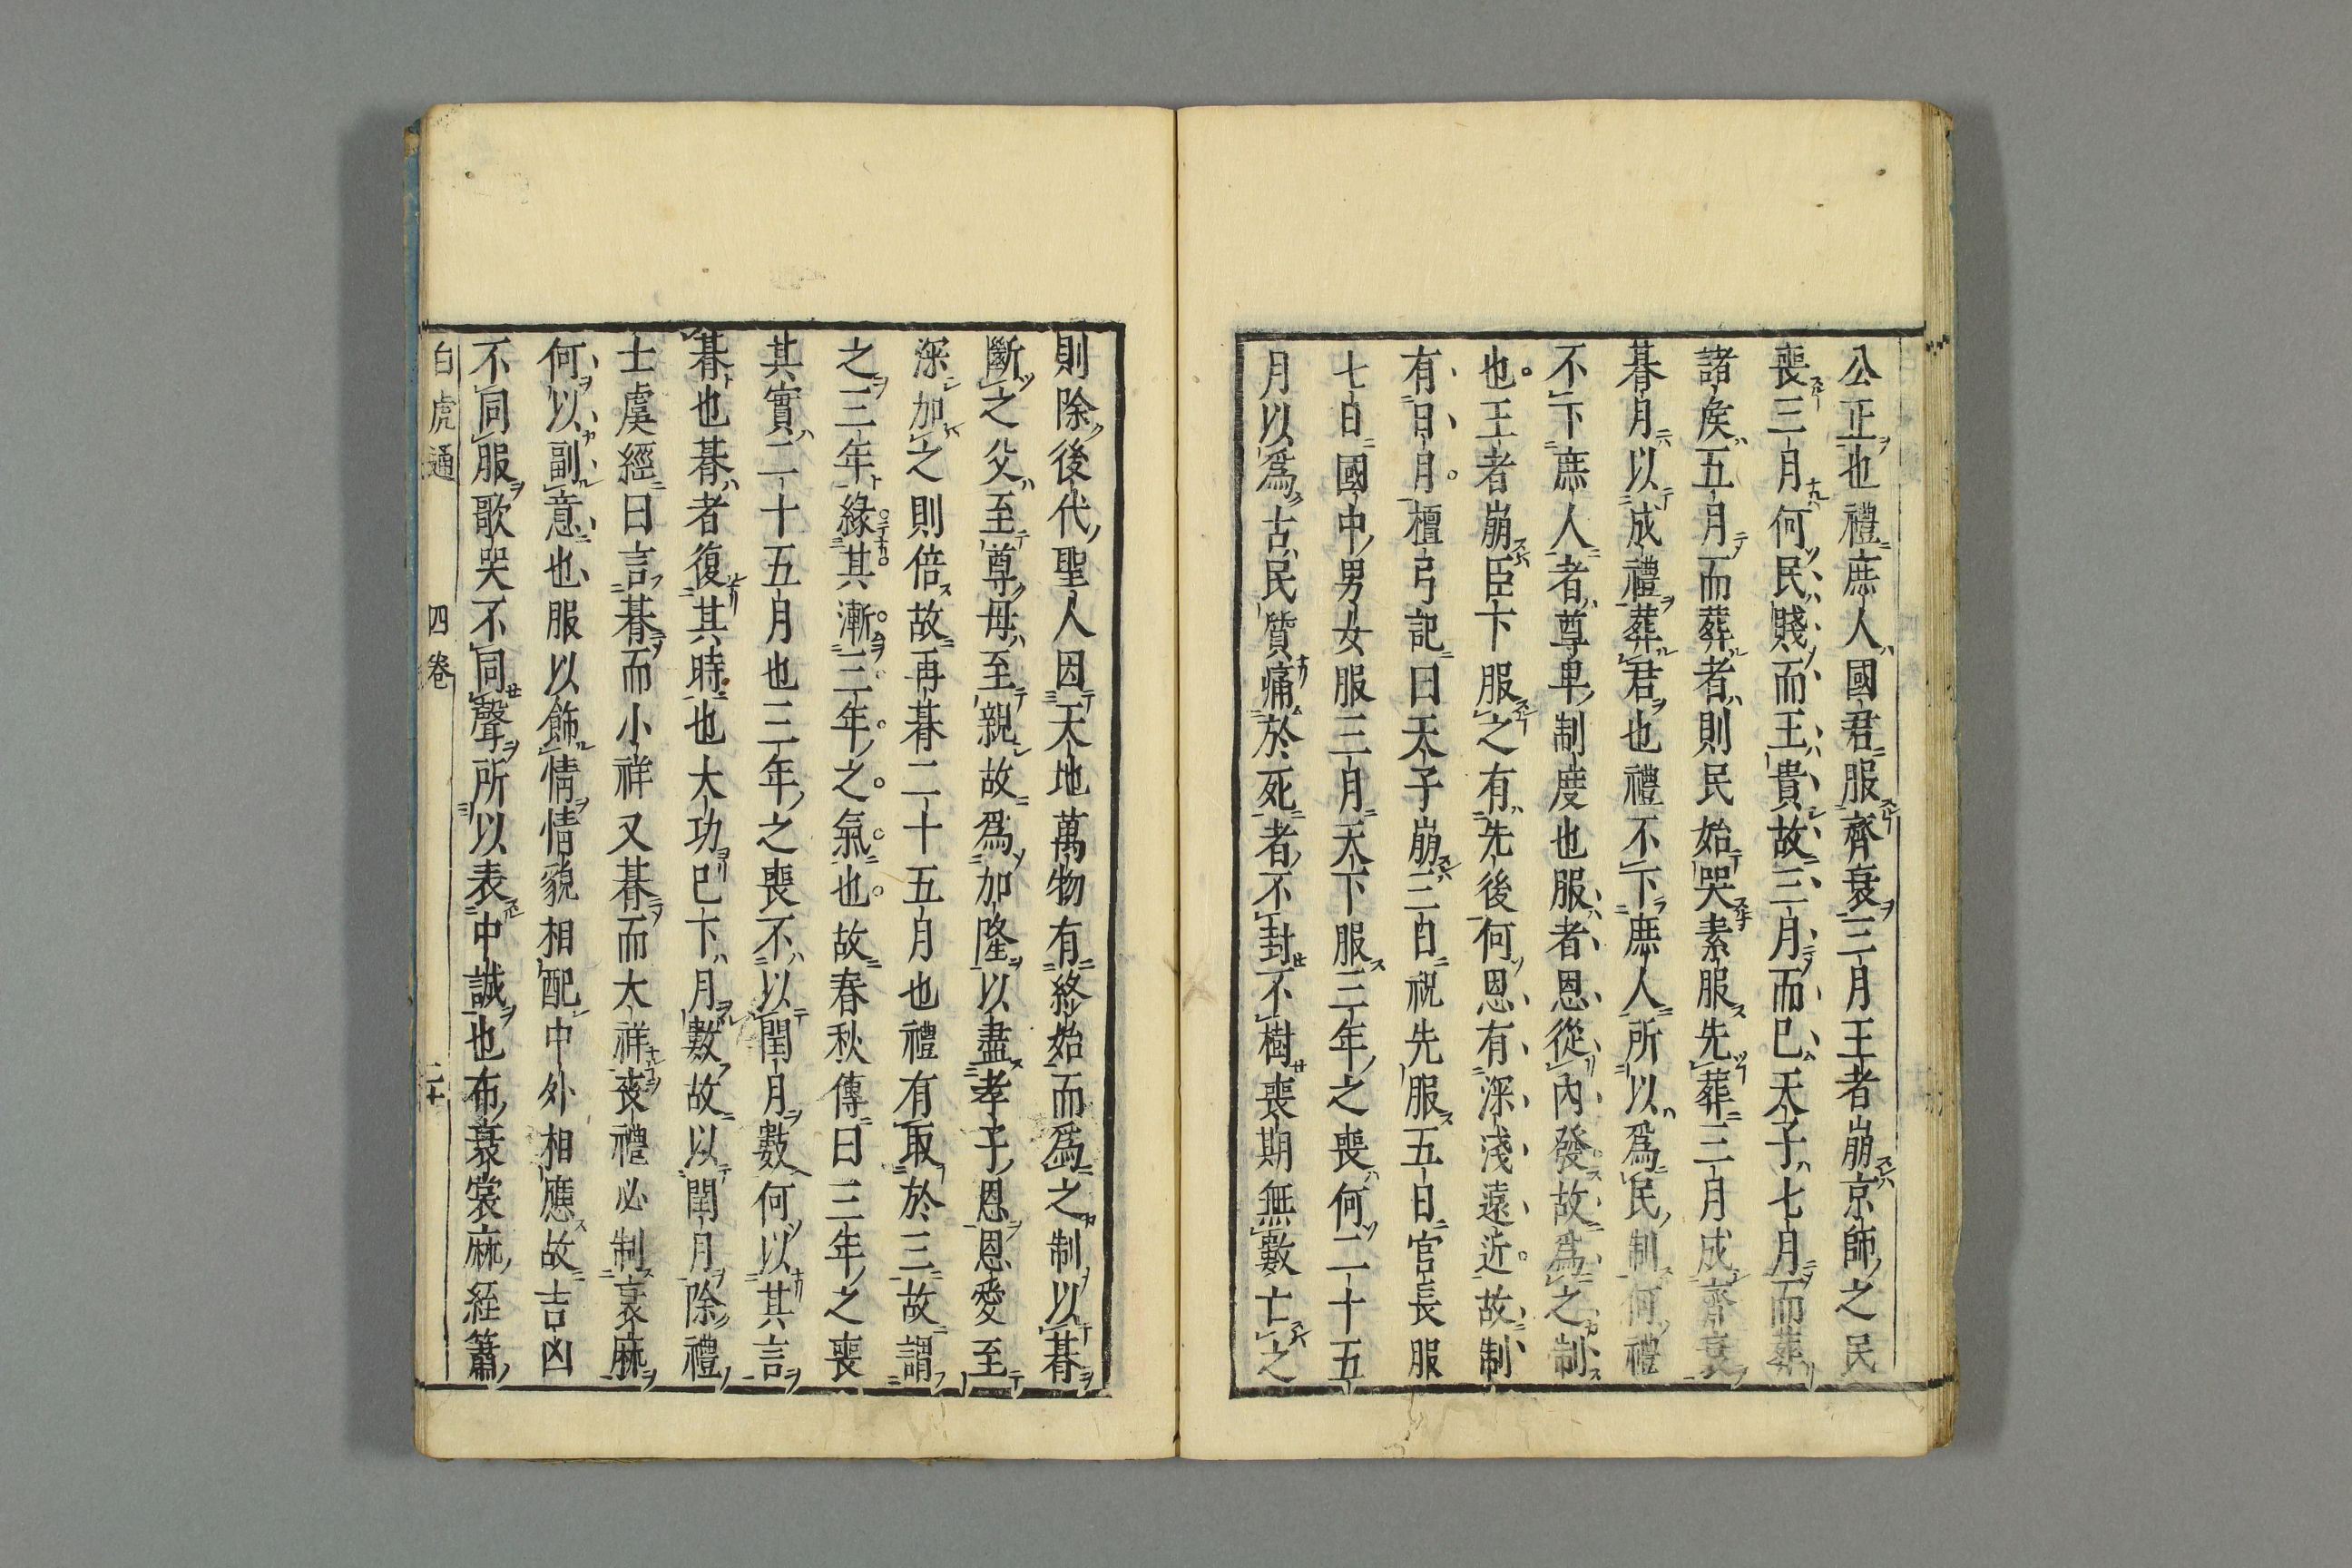 公正也禮庶人國君服齊衰三月王者崩京師之民
喪三月何民賤而王貴故三月而已天子七月而葬
諸矦五月而葬者則民始哭素服先葬三月成齊衰
朞月以成禮葬君也禮不下庶人所以爲民制何禮
不下庶人者尊卑制度也服者恩從內發故爲之制
也王者崩臣下服之有先後何恩有深淺遠近故制
有日月檀弓記曰天子崩三日祝先服五日官長服
七日國中男女服三月天下服三年之喪何二十五
月以爲古民質痛於死者不封不樹喪期無數亡之
則除後代聖人因天地萬物有終始而爲之制以朞
斷之父至尊母至親故爲加隆以盡孝子恩恩愛至
深加之則倍故再朞二十五月也禮有取於三故謂
之三年緣其漸三年之氣也故春秋傳曰三年之喪
其實二十五月也三年之喪不以閏月數何以其言
朞也朞者復其時也大功已下月數故以閏月除禮
士虞經曰言朞而小祥又朞而大祥喪禮必制衰麻
何以副意也服以飾情情貌相配中外相應故吉凶
不同服歌哭不同聲所以表中誠也布衰裳麻絰簫
白虎通 四卷 二十